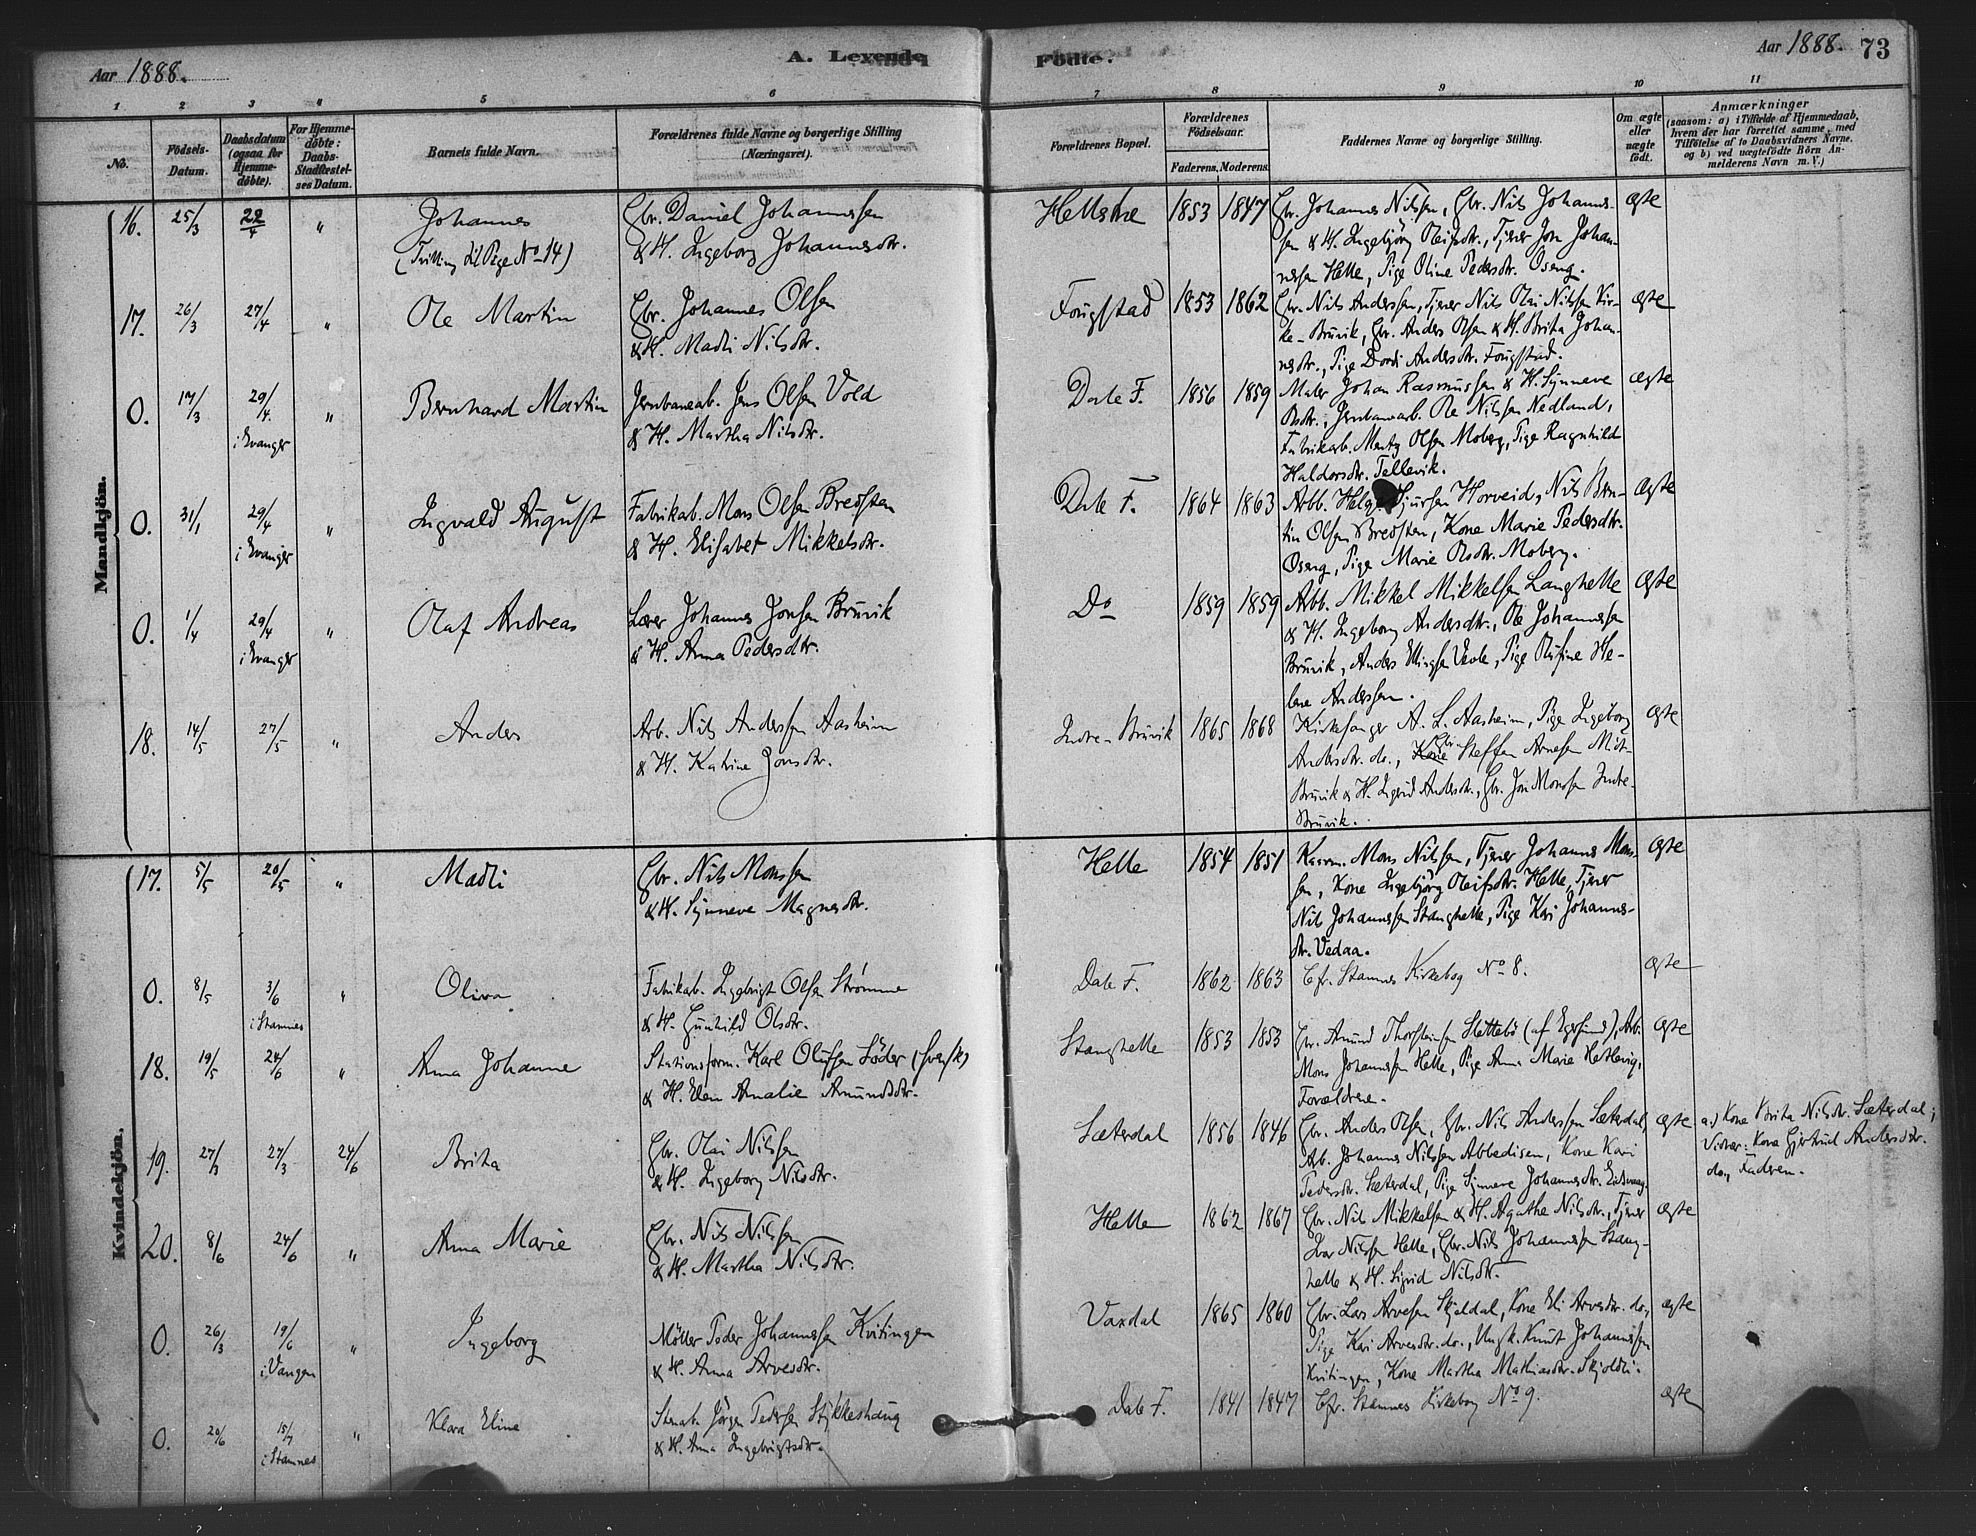 Aar 1888.
A. Levende
Fødte.
Aar 1888.
73
1 2 3 4 5 6 7 8 9 10 11
No.
Fødsels-Datum.
Daabsdatum (ogsaa for Hjemme-døbte).
For Hjemme-døbte: Daabs-Stadfæstel-ses Datum.
Barnets fulde Navn.
Forældrenes fulde Navne og borgerlige Stilling (Næringsvei).
Forældrenes Bopæl.
Forældrenes Fødselsaar.
Faderens. Moderens.
Faddernes Navne og borgerlige Stilling.
Om ægte eller uægte født.
Anmærkninger
(saasom: a) i Tilfælde af Hjemmedaab, hvem der har forrettet samme, med Tilføielse af to Daabsvidners Navne, og b) ved uægtefødte Børn An-melderens Navn m. V.)
Mandkjön.
16. 25/3 22/4 " Johannes
(Trilling til Pige No 14)
Gbr. Daniel Johannessen
& H. Ingeborg Johannesdtr.
Hellstræ 1853 1847
Gbr. Johannes Nilssen, Gbr. Nils Johannes-
sen & H. Ingebjörg Oleifsdtr., Tjener Jon Johan-
nessen Helle, Pige Oline Pedersdtr. Oseng.
ægte
17. 26/3 27/4 " Ole Martin
Gbr. Johannes Olsen
& H. Madli Nilsdtr.
Fougstad 1853 1862
Gbr. Nils Anderssen, Tjener Nils Olai Nilssen Vir-
ke-Bruvik, Gbr. Anders Olsen & H. Brita Johan-
nesdtr., Pige Dordi Andersdtr. Fougstad.
ægte
0. 17/3 29/4. i Evanger " Bernhard Martin
Jernbanearb. Jens Olsen Vold
& H. Martha Nilsdtr.
Dale F. 1856 1859
Maler Johan Rasmussen & H. Synneve
Olsdtr., Jernbanearb. Ole Nilssen Nedland,
Fabrikarb. Mentz Olsen Moberg, Pige Ragnhild
Haldorsdtr. Tellevik.
ægte
0. 31/1 29/4 i Evanger " Ingvald August
Fabrikab. Mons Olsen Bredsten
& H. Elisabet Mikkelsdtr.
Dale F. 1864 1863
Arbb. Helge Sjursen Horveid, Nils Bern-
tin Olsen Bredsten, Kone Marie Pedersdtr.
Oseng, Pige Marie Olsdtr. Moberg.
ægte
0. 1/4 29/4 i Evanger " Olaf Andreas
Lærer Johannes Jonssen Bruvik
& H. Anna Pedersdtr.
Do 1859 1859
Arbb. Mikkel Mikkelsen Langhelle
& H. Ingeborg Andersdtr., Ole Johannessen
Bruvik, Anders Ellingsen Vevle, Pige Rufine He-
lene Anderssen.
ægte
18. 14/5 27/5 " Anders
Arb. Nils Anderssen Aasheim
& H. Katrine Jonsdtr.
Indre-Bruvik 1865 1868
Kirkesanger A. L. Aasheim, Pige Ingeborg
Andersdtr. do., Gbr. Steffen Arnesen Mit-
Bruvik & H. Ingrid Andersdtr., Gbr. Jon Monssen Indre-
Bruvik.
ægte
Kvindekjön.
17. 5/5 20/5 " Madli
Gbr. Nils Monssen
& H. Synneve Magnesdtr.
Helle 1854 1851
Kaarm. Mons Nilssen, Tjener Johannes Mons-
sen, Kone Ingebjörg Oleifsdtr. Helle, Tjener
Nils Johannessen Stanghelle, Pige Kari Johannes-
dtr. Vedaa.
ægte
0. 8/5 3/6 i Stamnes " Oliva
Fabrikarb. Ingebrigt Olsen Strømme
& H. Gunhild Olsdtr.
Dale F. 1862 1863
Cfr. Stamnes Kirkebog No 8.
ægte
18. 19/5 24/6 " Anna Johanne
Stationsform. Karl Olufsen Söder (svensk)
& H. Elen Amalie Amundsdtr.
Stanghelle 1853 1853
Gbr. Amund Thorsteinsen Slettebö (af Egersund), Arb.
Mons Johannessen Helle, Pige Anna Marie Hetlevig,
Forældrene.
ægte
19. 27/3 27/3 24/6 Brita
Gbr. Olai Nilssen
& H. Ingeborg Nilsdtr.
Sæterdal 1856 1846
Gbr. Anders Olsen, Gbr. Nils Anderssen Sæterdal,
Arb. Johannes Nilssen Abbedisen, Kone Kari
Pedersdtr. Sæterdal, Pige Synneve Johannesdtr. Eidsvaag.
ægte
a.) Kone Brita Nilsdtr. Sæterdal;
Vidner: Kone Gjertrud Andersdtr.
do, Faderen.
20. 8/6 24/6 " Anna Marie
Gbr. Nils Nilssen
& H. Martha Nilsdtr.
Helle 1862 1867
Gbr. Nils Mikkelsen & H. Agathe Nilsdtr., Tjener
Ivar Nilssen Helle, Gbr. Nils Johannessen Stang-
helle & H. Sigrid Nilsdtr.
ægte
0. 26/3 19/6 i Vangen " Ingeborg
Möller Peder Johannessen Kvitingen
& H. Anna Arvesdtr.
Vaxdal 1865 1860
Gbr. Lars Arvesen Skjeldal, Kone Eli Arvesdtr. do.,
Pige Kari Arvesdtr. do., Ungk. Knut Johannessen
Kvitingen, Kone Martha Mathiasdtr. Skjoldli.
ægte
0. 20/6 15/7 i Stamnes " Klara Eline
Stenarb. Jörgen Pedersen Stykkeshaug
& H. Anna Ingebrigtsdtr.
Dale F. 1841 1847
Cfr. Stamnes Kirkebog No 9.
ægte